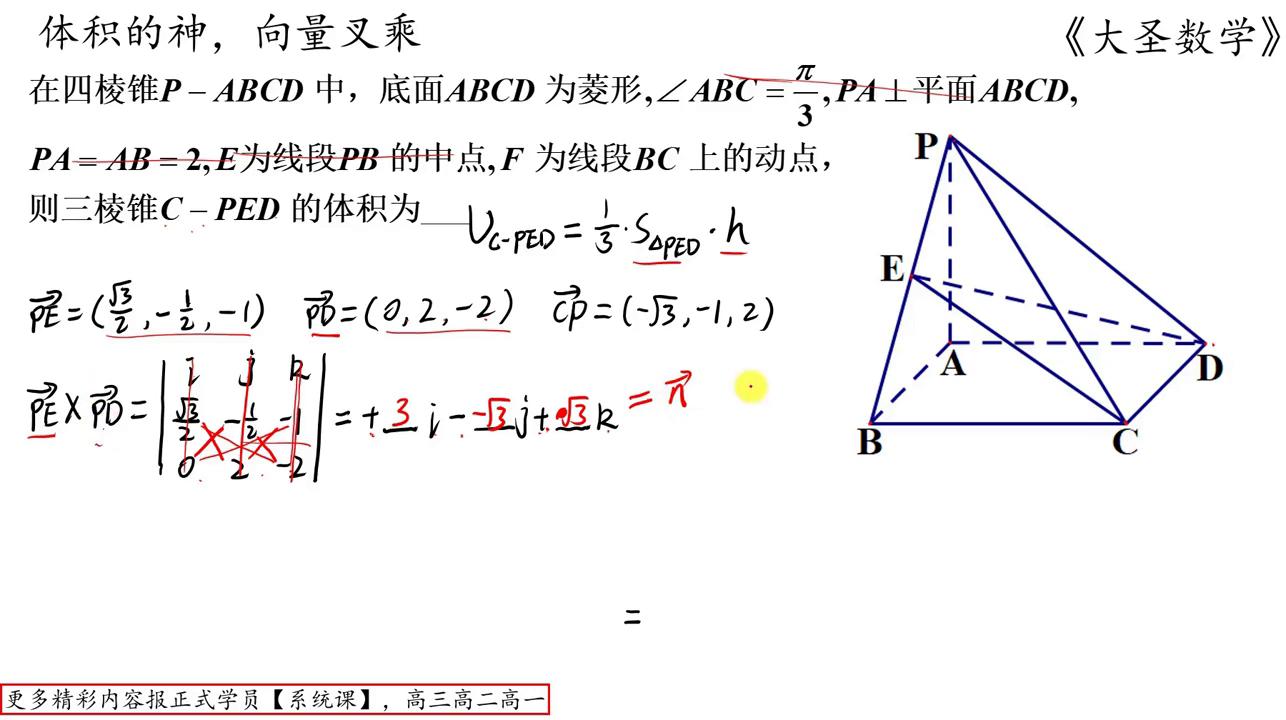 体积的神，向量叉乘
《大圣数学》
在四棱锥P – ABCD 中，底面ABCD 为菱形,∠ABC = π/3, PA⊥平面ABCD,
PA = AB = 2, E为线段PB 的中点, F 为线段BC 上的动点，
则三棱锥C – PED 的体积为____
V_{C-PED} = 1/3 · S_{△PED} · h
PE→ = (√3/2, -1/2, -1) PD→ = (0, 2, -2) CP→ = (-√3, -1, 2)
PE→ × PD→ = | i j k ; √3/2 -1/2 -1 ; 0 2 -2 | = + 3 i - -√3 j + √3 k = n→
=
P
E
A
D
B
C
更多精彩内容报正式学员【系统课】，高三高二高一